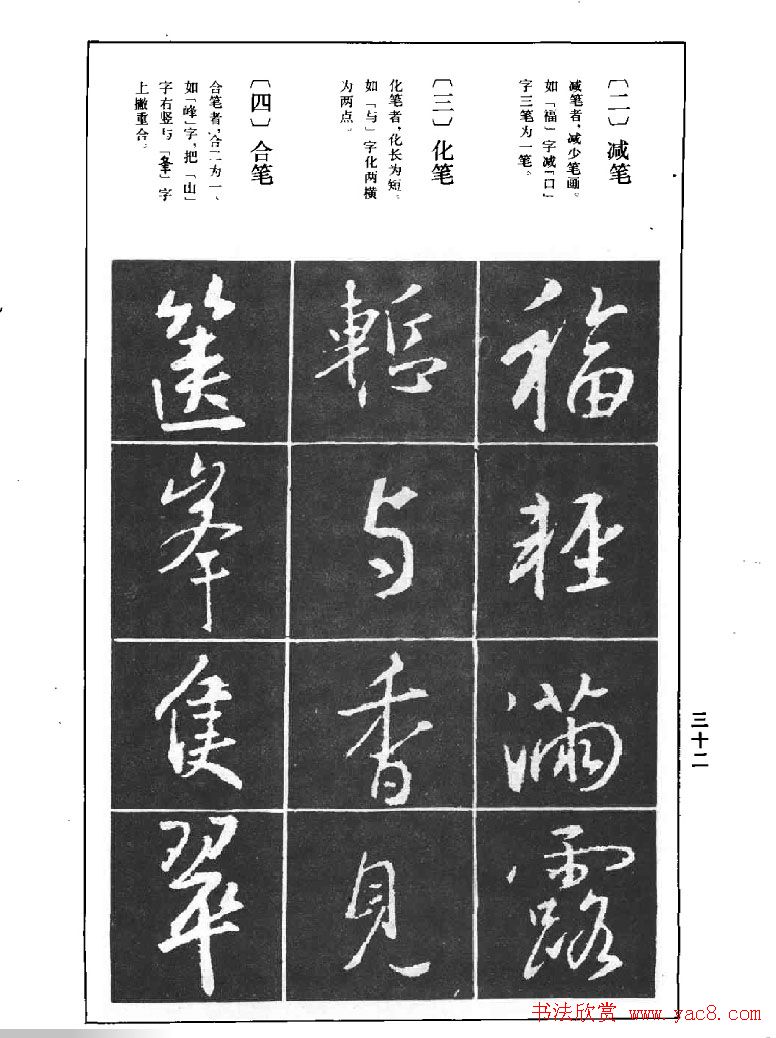 〔二〕减笔
减笔者，减少笔画。
如「福」字减「口」
字三笔为一笔。
〔三〕化笔
化笔者，化长为短。
如「与」字化两横
为两点。
〔四〕合笔
合笔者，合二为一、
如「峰」字，把「山」
字右竖与「夆」字
上撇重合。
福
轻
满
露
暂
与
香
见
峯
隻
翠
三十二
书法欣赏 www.yac8.com